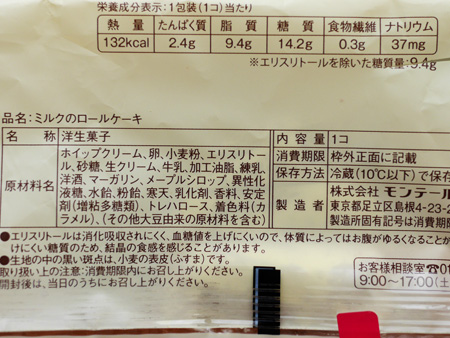 栄養成分表示：1包装（1コ）当たり
熱量 たんぱく質 脂質 糖質 食物繊維 ナトリウム
132kcal 2.4g 9.4g 14.2g 0.3g 37mg
※エリスリトールを除いた糖質量：9.4g
品名：ミルクのロールケーキ
名称 洋生菓子
原材料名 ホイップクリーム、卵、小麦粉、エリスリトー
ル、砂糖、生クリーム、牛乳、加工油脂、練乳、
洋酒、マーガリン、メープルシロップ、異性化
液糖、水飴、粉飴、寒天、乳化剤、香料、安定
剤（増粘多糖類）、トレハロース、着色料（カ
ラメル）、（その他大豆由来の原材料を含む）
内容量 1コ
消費期限 枠外正面に記載
保存方法 冷蔵（10℃以下）で保存
製造者 株式会社 モンテール
東京都足立区島根4-23-2
製造所固有記号は消費期限
●エリスリトールは消化吸収されにくく、血糖値を上げにくいので、体質によってはお腹がゆるくなること
けにくい糖質のため、結晶の食感を感じることがあります。
●生地の中の黒い斑点は、小麦の表皮（ふすま）です。
取り扱い上の注意：消費期限内にお召し上がりください。
開封後は、当日のうちにお召し上がりください。
お客様相談室☎01
9:00〜17:00（土